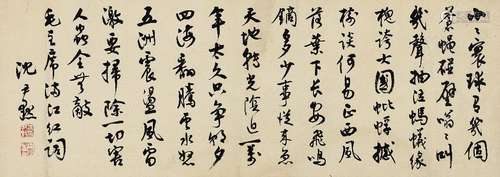 小々寰球有幾個
蒼蠅碰壁嗡々叫
幾聲抽泣螞蟻緣
槐誇大國蚍蜉撼
樹談何易正西風
落葉下長安飛鳴
鏑多少事從來急
天地轉光陰迫一萬
年太久只爭朝夕
四海翻騰雲水怒
五洲震盪風雷
激要掃除一切害
人蟲全無敵
毛主席滿江紅詞
沈尹默